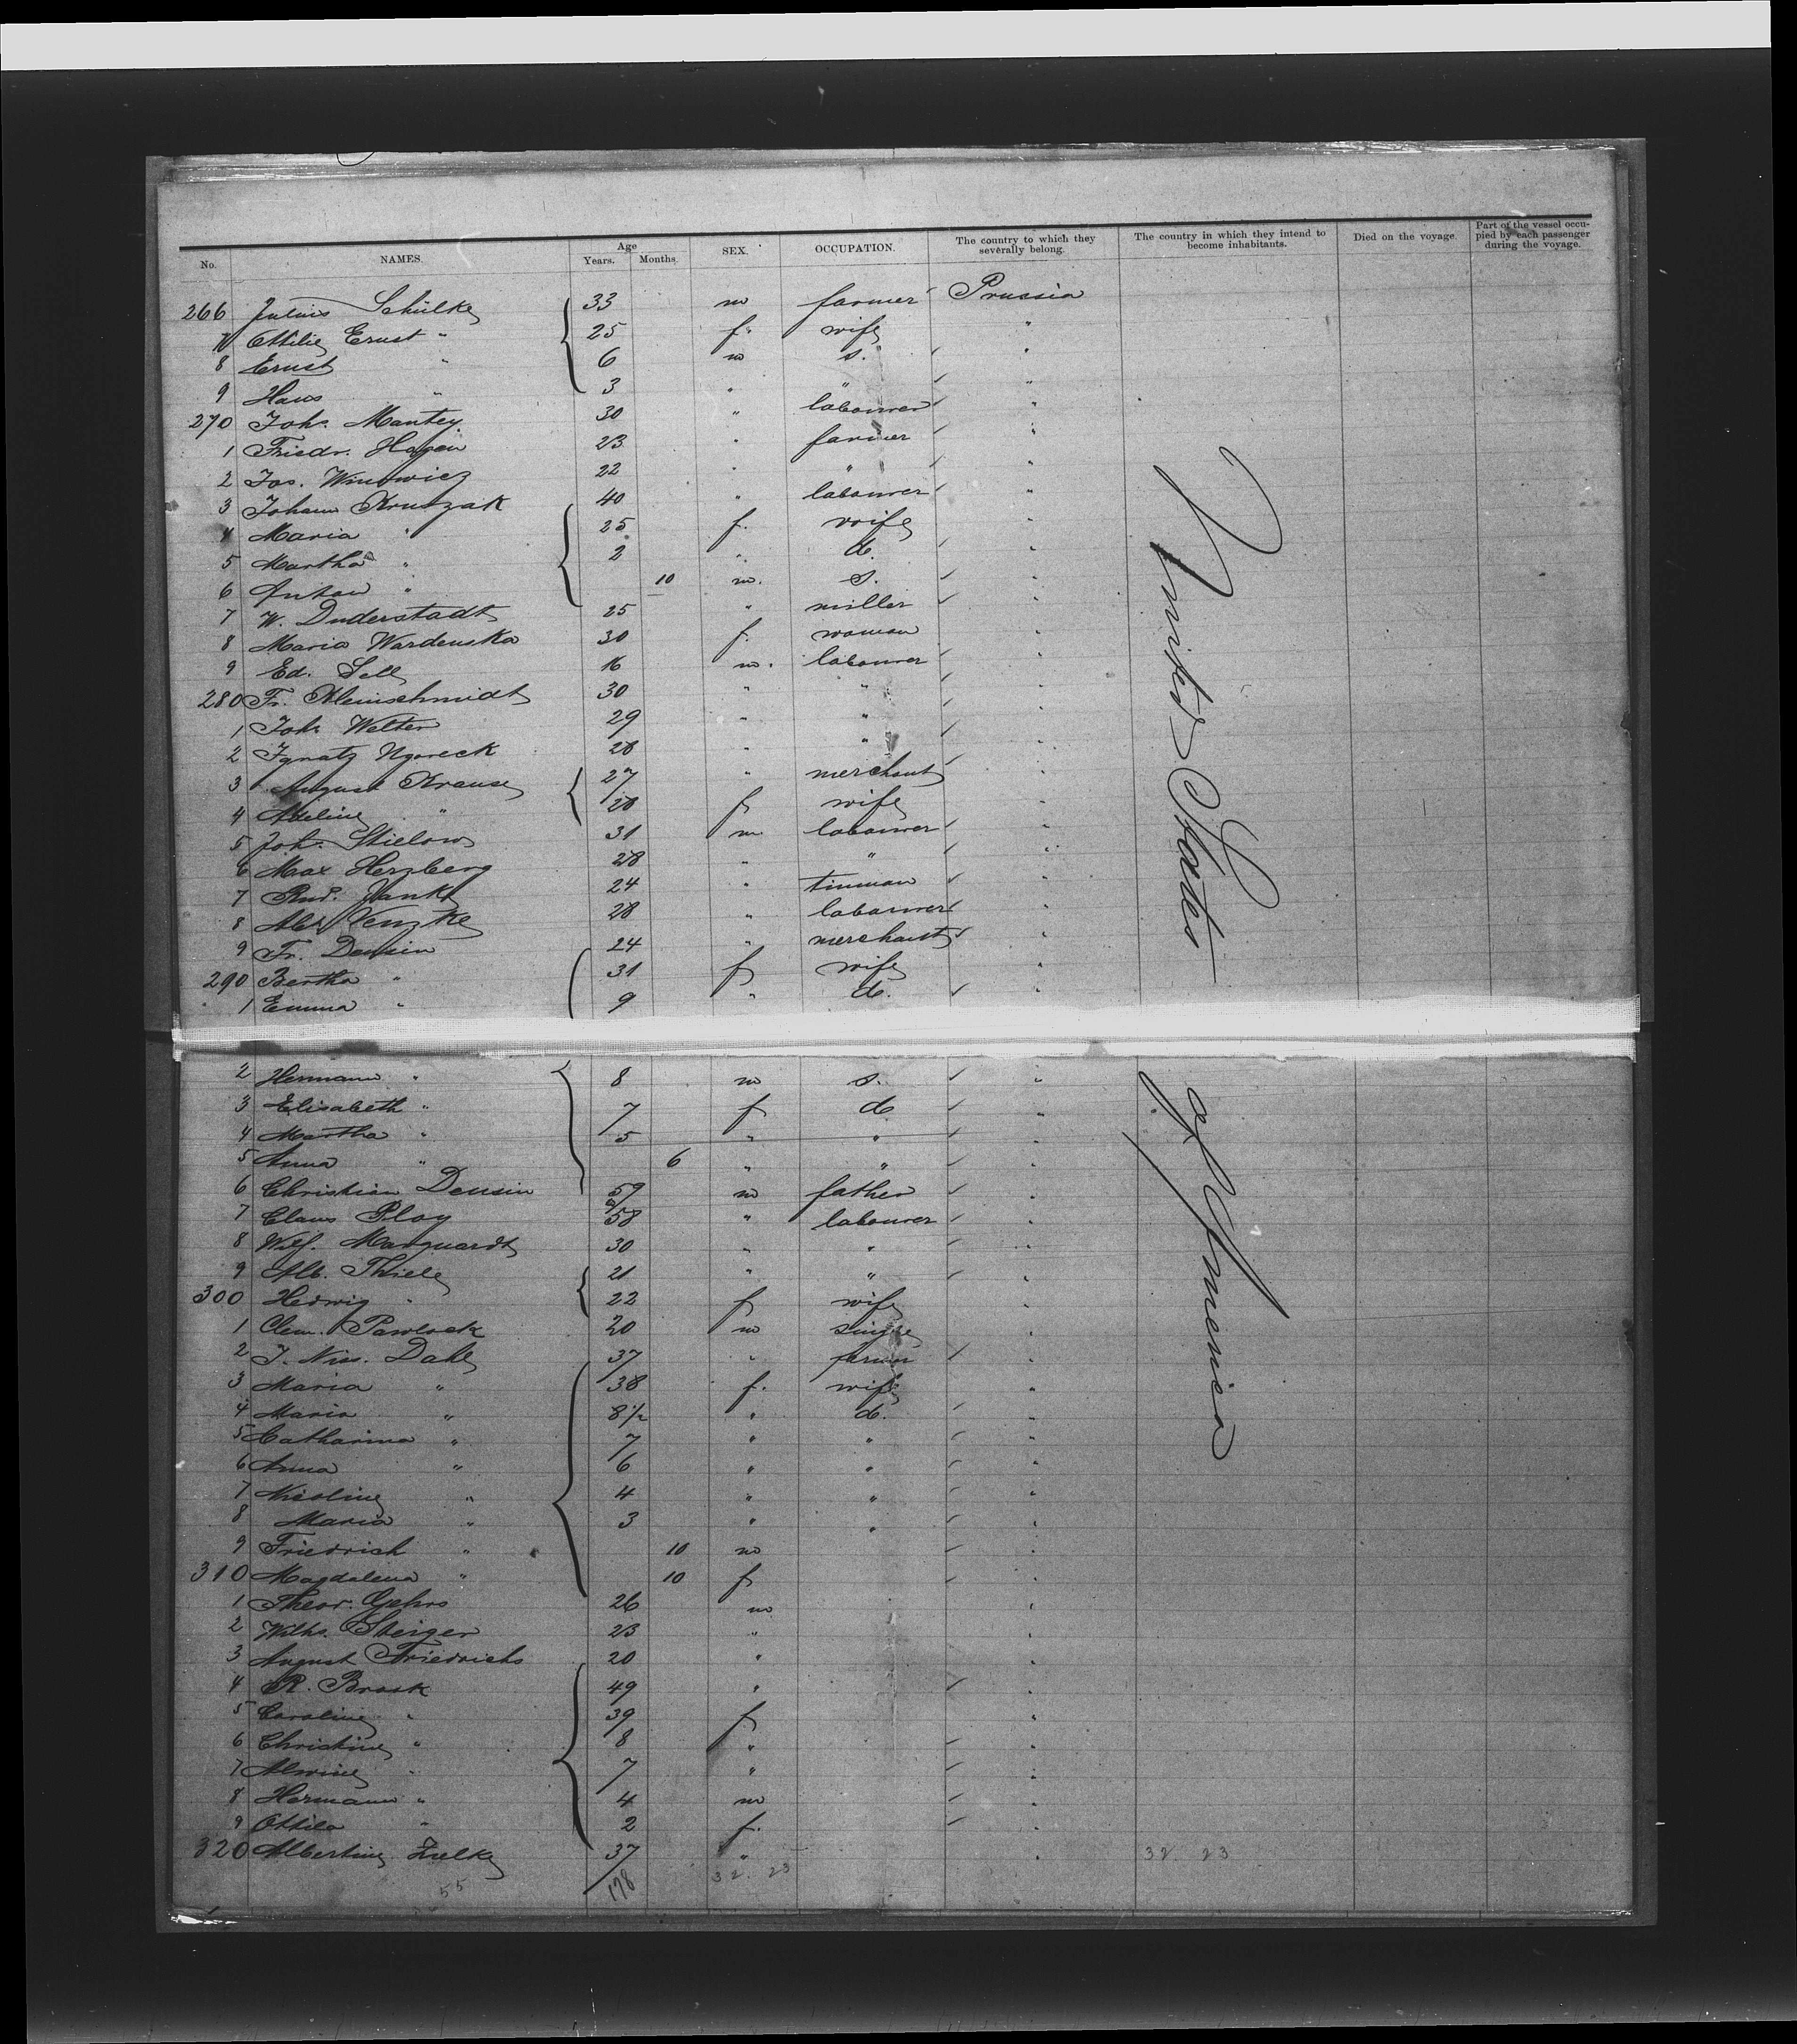 No. NAMES. Age Years. Months. SEX. OCCUPATION. The country to which they severally belong. The country in which they intend to become inhabitants. Died on the voyage. Part of the vessel occupied by each passenger during the voyage.
266 Julius Schülke 33 m farmer Prussia
7 Ottilie Ernst " 25 f. wife "
8 Ernst " 6 m s. "
9 Hans " 3 " " "
270 Joh. Mantey 30 " labourer "
1 Friedr. Hagen 23 " farmer "
2 Jos. Winowicz 22 " " "
3 Johann 40 " labourer "
4 Maria " 25 f. wife "
5 Martha " 2 " d. "
6 Anton " 10 m. s. "
7 W. Duderstadt 25 " miller "
8 Maria Wardenska 30 f. woman "
9 Ed. Sell 16 m. labourer "
280 Fr. Kleinschmidt 30 " " "
1 Joh. Welter 29 " " "
2 Ignatz 28 " " "
3 August Krause 27 " merchant "
4 Adeline " 28 f wife "
5 Joh. Stielow 31 m labourer "
6 Max Herzberg 28 " " "
7 Rud. Janke 24 " tinman "
8 Venzke 28 " labourer "
9 Fr. Densin 24 " merchant "
290 Bertha " 31 f wife "
1 Emma " 9 " d.
2 Hermann " 8 m s. "
3 Elisabeth " 7 f d. "
4 Martha " 5 " " "
5 Anna " 6 " " "
6 Christian Densin 59 m father "
7 Claus Ploy 58 " labourer "
8 Wilh. Marquardt 30 " " "
9 Alb. Thiele 21 " " "
300 Hedwig " 22 f wife "
1 Clem. Pawlack 20 m single "
2 J. Niss. Dahl 37 " farmer
3 Maria " 38 f. wife "
4 Maria " 8 1/2 " d. "
5 Catharina " 7 " " "
6 Anna " 6 " " "
7 Nicoline " 4 " " "
8 Maria " 3 " " "
9 Friedrich " 10 m "
310 Magdalena " 10 f "
1 Theor. Gehrs 26 m "
2 Wilh. Steiger 23 " "
3 August Friedrichs 20 " "
4 R. Brask 49 " "
5 Caroline " 39 f "
6 Christine " 8 " "
7 Alwine " 7 " "
8 Hermann " 4 m "
9 Ottila " 2 f. "
320 Albertine Zielke 37 " "
55 178 32. 23 32. 23
United States
of America